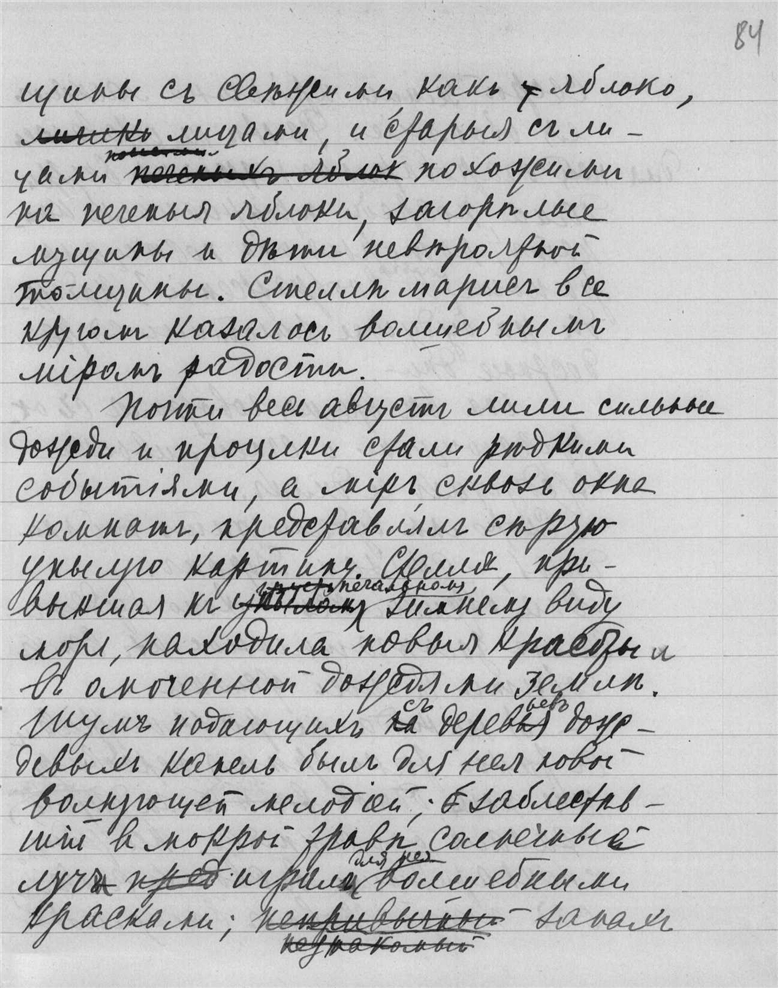 84
щины съ свѣжими какъ яблоко,
личикъ лицами, и старыя съ ли-
цами печеныхъ яблок похожими
на печеныя яблоки, загорѣлые
мущины и дѣти невѣроятной
толщины. Стеллѣ марисъ все
кругом казалось волшебнымъ
міромъ радости.
Почти весь августъ лили сильные
дожди и прогулки стали рѣдкими
событіями, а міръ, сквозь окна
комнатъ, представлялъ сѣрую
унылую картину. Стелла, при-
выкшая къ унылому грустно печальному зимнему виду
моря, находила новыя красоты
въ омоченной дождями землѣ.
Шумъ падающихъ на съ деревья деревьевъ дож-
девыхъ капель былъ для нея новой
волнующей мелодіей; заблестѣв-
шій в мокрой травѣ солнечный
лучъ пред игралъ для нея волшебными
красками; непривычный запахъ
незнакомый